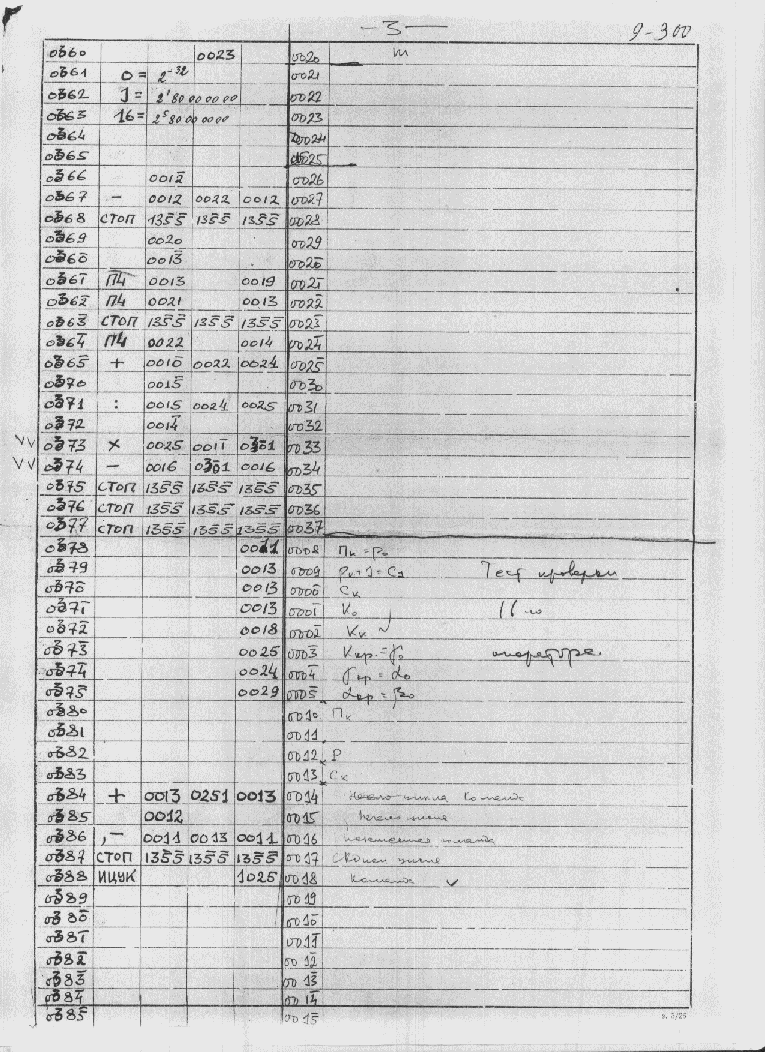 - 3 - 9-300
0360 0023 0020 m
0361 0 = 2⁻³² 0021
0362 1 = 2¹80 00 00 00 0022
0363 16 = 2⁵80 00 00 00 0023
0364 0024
0365 0025
0366 001̅2̅ 0026
0367 – 0012 0022 0012 0027
0368 стоп 135̅5̅ 135̅5̅ 135̅5̅ 0028
0369 0020 0029
0360̅ 0013̅ 0020̅
0361̅ П4 0013 0019 0021̅
0362̅ П4 0021 0013 0022̅
0363̅ стоп 135̅5̅ 135̅5̅ 135̅5̅ 0023̅
0364̅ П4 0022 0014 0024̅
0365̅ + 0010̅ 0022 0024 0025̅
0370 0015̅ 0030
0371 : 0015 0024 0025 0031
0372 0014̅ 0032
VV 0373 × 0025 0011̅ 0301 0033
VV 0374 – 0016 0301 0016 0034
0375 стоп 135̅5̅ 135̅5̅ 135̅5̅ 0035
0376 стоп 135̅5̅ 135̅5̅ 135̅5̅ 0036
0377 стоп 135̅5̅ 135̅5̅ 135̅5̅ 0037
0378 0011 0008 Пк = р₀
0379 0013 0009 Тест проверки
0370̅ 0013 0000̅ Ск
0371̅ 0013 0001̅ К₀
0372̅ 0018 0002̅ Кк
0373̅ 0025 0003̅ оператора.
0374̅ 0024 0004̅
0375̅ 0029 0005̅
0380 0010 Пк
0381 0011
0382 0012 Р
0383 0013 Ск
0384 + 0013 0251 0013 0014 Команда
0385 0012 0015
0386 ,– 0011 0013 0011 0016
0387 стоп 135̅5̅ 135̅5̅ 135̅5̅ 0017
0388 ИЦУК 1025 0018 Команда ✓
0389 0019
0380̅ 0010̅
0381̅ 0011̅
0382̅ 0012̅
0383̅ 0013̅
0384̅ 0014̅
0385̅ 0015̅